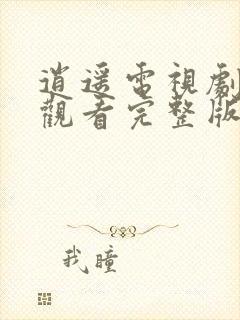 逍遥電視劇
觀看完整版
我瞳